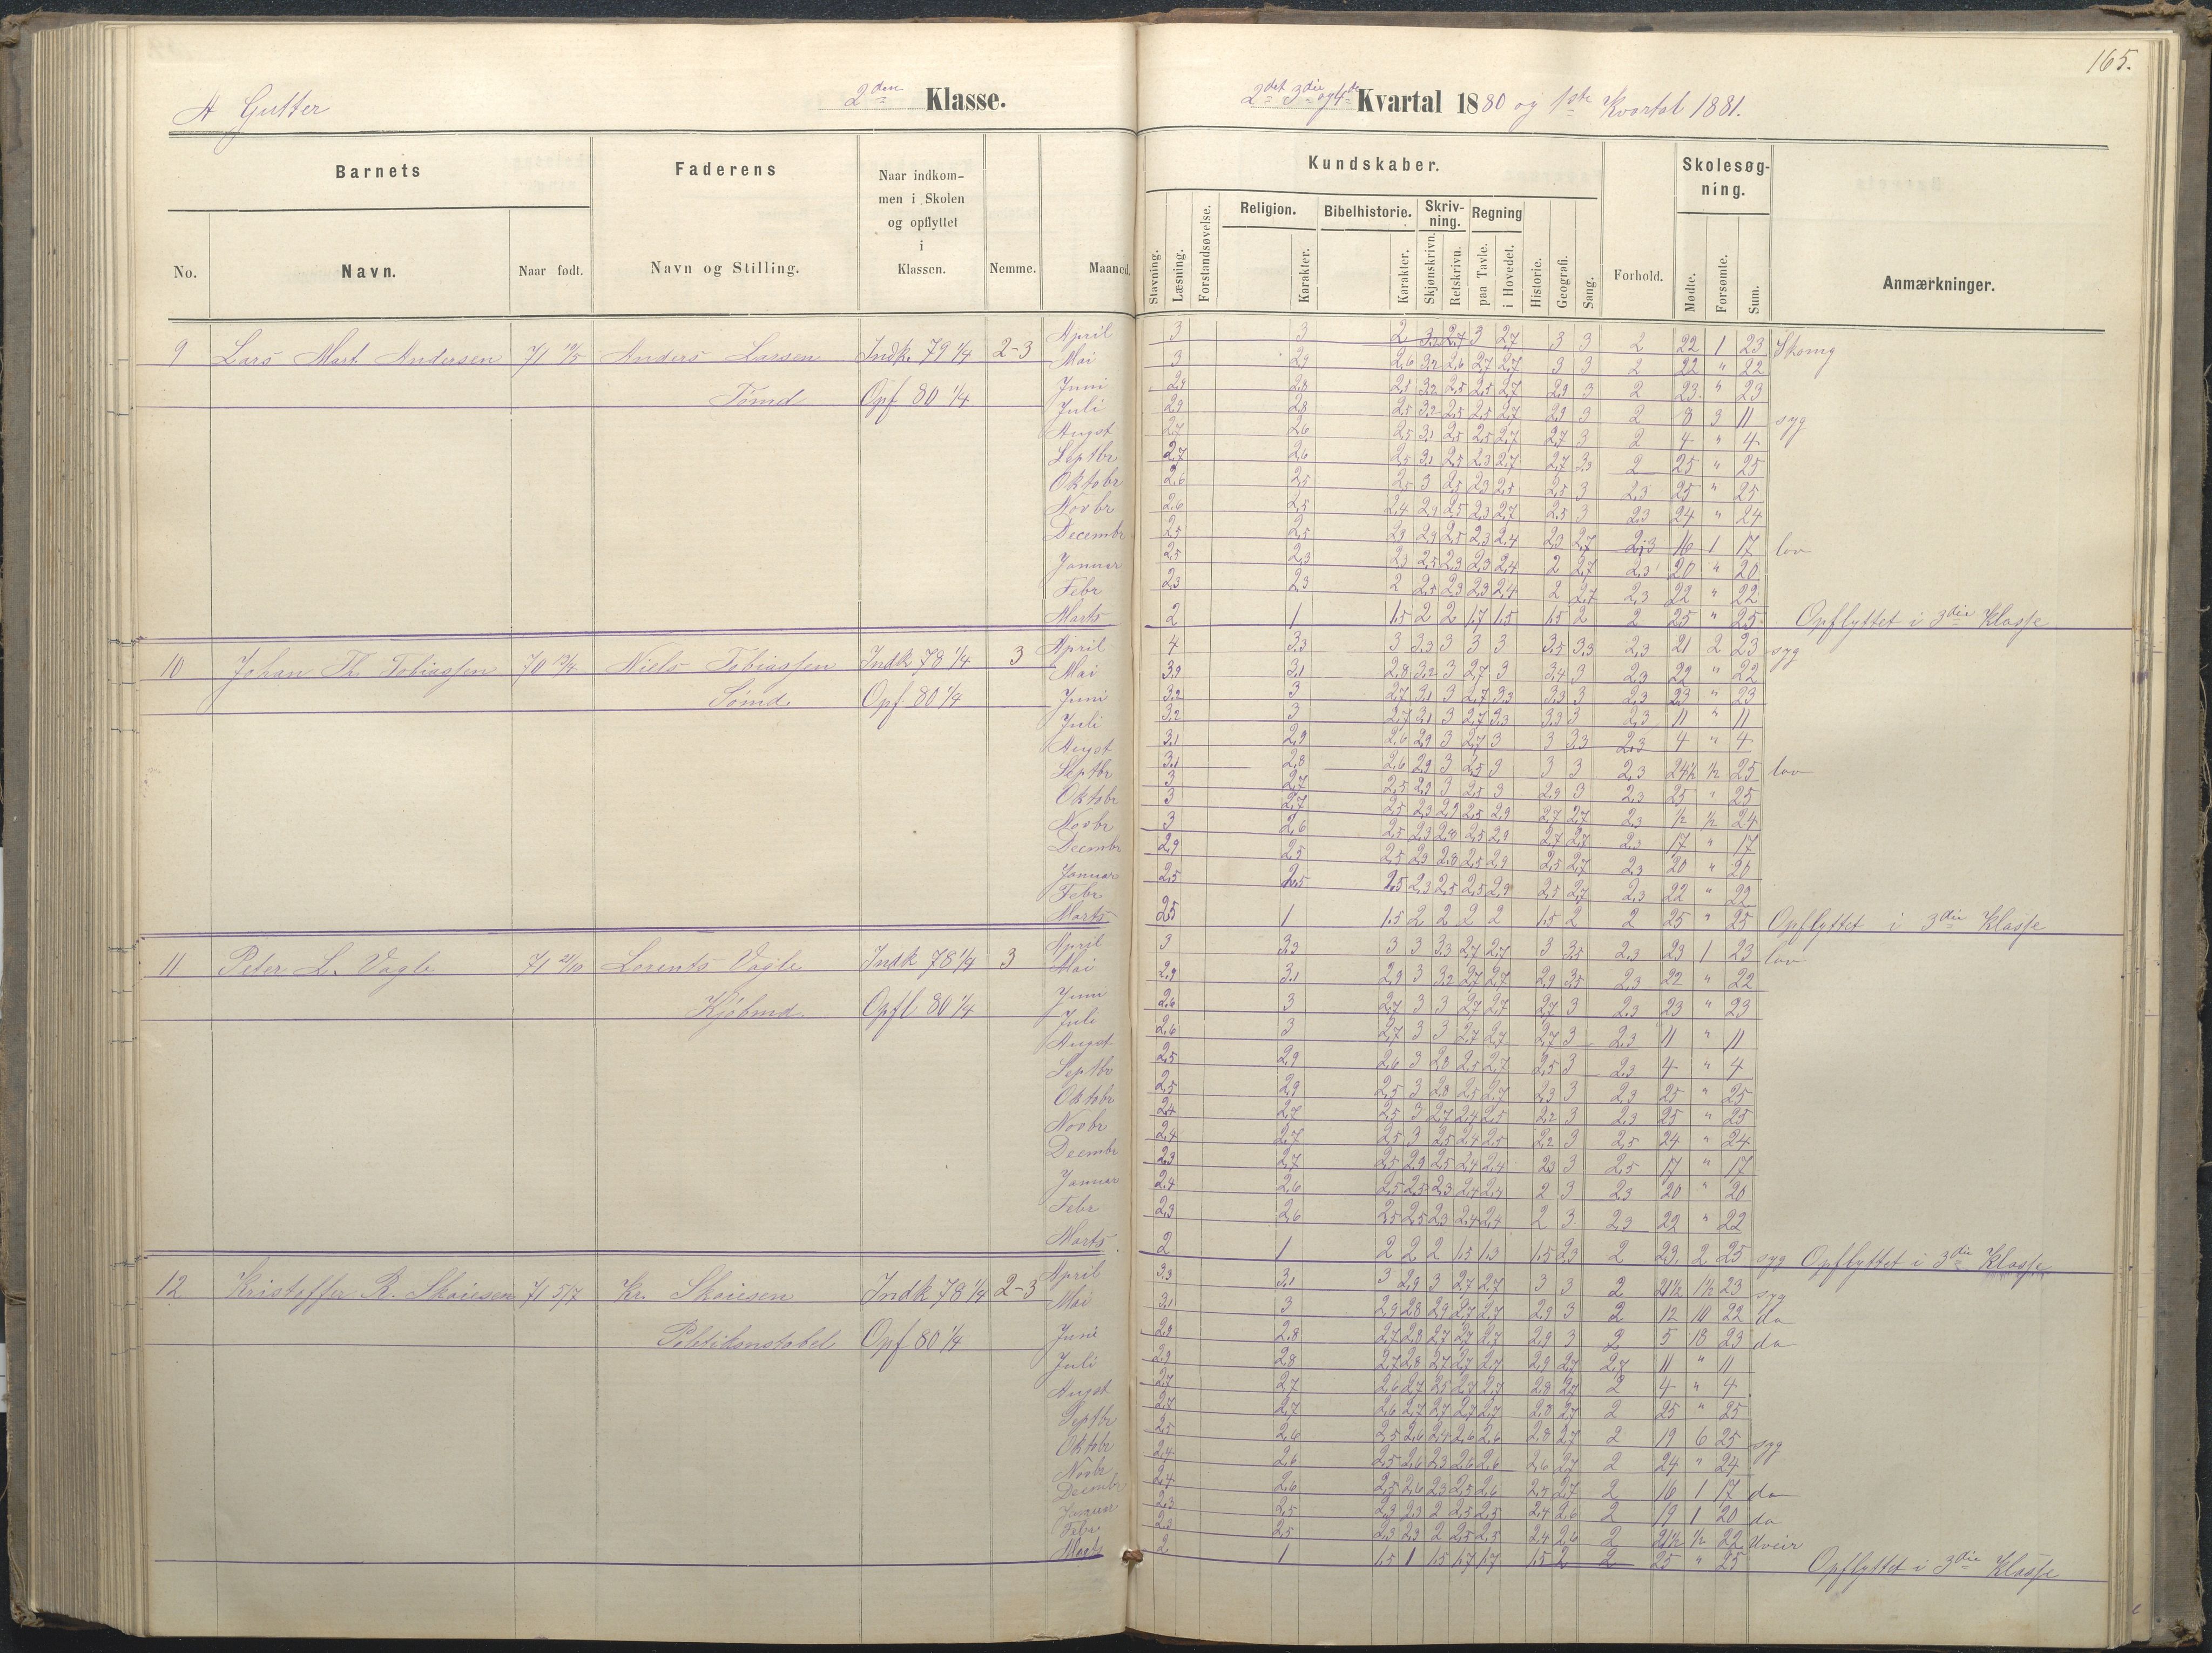 165.
A Gutter
2den Klasse.
2det 3die og 4de Kvartal 1880 og 1ste Kvartal 1881.
Barnets
Faderens
Naar indkom-
men i Skolen
og opflyttet
i
Klassen.
Nemme.
Maaned.
No.
Navn.
Naar født.
Navn og Stilling.
Kundskaber.
Skolesøg-
ning.
Stavning.
Læsning.
Forstandsøvelse.
Religion.
Karakter.
Bibelhistorie.
Karakter.
Skriv-
ning.
Skjønskrivn.
Retskrivn.
Regning
paa Tavle.
i Hovedet.
Historie.
Geografi.
Sang.
Forhold.
Mødte.
Forsømte.
Sum.
Anmærkninger.
April 3 3 2 3 2,7 3 3 2 22 1 23
9 Lars Mart. Andersen 71 Anders Larsen Indk. 79 1/4 2-3 Mai 3 2,9 2,6 3,2 2,6 2,7 2,7 3 3 2 22 " 22
Tømd Opf 80 1/4 Juni 2,9 2,8 2,5 3,2 2,5 2,5 2,7 2,9 3 2 23 " 23
Juli 2,9 2,8 2,5 3,2 2,5 2,5 2,7 2,9 3 2 8 3 11 syg
Augst 2,7 2,6 2,5 3,1 2,5 2,5 2,7 2,7 3 2 4 " 4
Septbr 2,7 2,6 2,5 3,1 2,5 2,3 2,7 2,7 3,3 2 25 " 25
Oktobr 2,6 2,5 2,5 3 2,5 2,3 2,5 2,5 3 2,3 25 " 25
Novbr 2,6 2,5 2,4 2,9 2,5 2,3 2,7 2,5 3 2,3 24 " 24
Decembr 2,5 2,5 2,3 2,9 2,5 2,3 2,4 2,3 2,7 2,3 16 1 17 lov
Januar 2,5 2,3 2,3 2,5 2,3 2,3 2,4 2 2,7 2,3 20 " 20
Febr 2,3 2,3 2 2,5 2,3 2,3 2,4 2 2,7 2,3 22 " 22
Marts 2 1 1,5 2 2 1,7 1,5 1,5 2 2 25 " 25 Opflyttet i 3die Klasse
April 4 3,3 3 3,3 3 3 3 3,5 3,3 2,3 21 2 23 syg
10 Johan Th. Tobiassen 70 Niels Tobiassen Indk 78 1/4 3 Mai 3,9 3,1 2,8 3,2 3 2,7 3 3,4 3 2,3 22 " 22
Tømd. Opf. 80 1/4 Juni 3,2 3 2,7 3,1 3 2,7 3,3 3,3 3 2,3 23 " 23
Juli 3,2 3 2,7 3,1 3 2,7 3,3 3,3 3 2,3 11 " 11
Augst 3,1 2,9 2,6 2,9 3 2,7 3 3 3,3 2,3 4 " 4
Septbr 3,1 2,8 2,6 2,9 3 2,5 3 3 3 2,3 24 1/2 1/2 25 lov
Oktobr 3 2,7 2,5 2,9 3 2,5 3 2,9 3 2,3 25 " 25
Novbr 3 2,7 2,5 2,3 2,9 2,5 2,9 2,7 2,7 2,3 1/2 1/2 24
Decembr 3 2,6 2,5 2,3 2,8 2,5 2,9 2,7 2,7 2,3 17 " 17
Januar 2,9 2,5 2,5 2,3 2,8 2,5 2,9 2,5 2,7 2,3 20 " 20
Febr 2,5 2,5 2,5 2,3 2,5 2,5 2,9 2,5 2,7 2,3 22 " 22
Marts 2,5 1 1,5 2 2 2 2 1,5 2 2 25 " 25 Opflyttet i 3die Klasse
April 3 3,3 3 3 3,3 2,7 2,7 3 3,5 2,3 23 1 23 lov
11 Peter L. Vagle 71 21/10 Lorents Vagle Indk 78 1/4 3 Mai 2,9 3,1 2,9 3 3,2 2,7 2,7 2,9 3,5 2,3 22 " 22
Kjøbmd. Opfl 80 1/4 Juni 2,6 3 2,7 3 3 2,7 2,7 2,7 3 2,3 23 " 23
Juli 2,6 3 2,7 3 3 2,7 2,7 2,7 3 2,3 11 " 11
Augst 2,5 2,9 2,6 3 2,8 2,5 2,7 2,5 3 2,3 4 " 4
Septbr 2,5 2,9 2,5 3 2,8 2,5 2,7 2,3 3 2,3 25 " 25
Oktobr 2,4 2,7 2,5 3 2,7 2,4 2,5 2,2 3 2,3 25 " 25
Novbr 2,4 2,7 2,5 3 2,5 2,4 2,5 2,2 3 2,5 24 " 24
Decembr 2,3 2,7 2,5 2,9 2,5 2,4 2,4 2,3 3 2,5 17 " 17
Januar 2,4 2,6 2,5 2,5 2,3 2,4 2,4 2 3 2,3 20 " 20
Febr 2,3 2,6 2,5 2,5 2,3 2,4 2,4 2 3 2,3 22 " 22
Marts 2 1 2 2 2 1,5 1,3 1,5 2,3 2 23 2 25 syg Opflyttet i 3die Klasse
April 3,3 3,1 3 2,9 3 2,7 2,7 3 3 2 21 1/2 1 1/2 23 syg
12 Kristoffer R. Skoiesen 71 5/7 Kr. Skoiesen Indk 78 1/4 2-3 Mai 3,1 3 2,9 2,8 2,9 2,7 2,7 2,9 3 2 12 10 22 do
Politikonstabel Opf 80 1/4 Juni 2,9 2,8 2,7 2,8 2,7 2,7 2,7 2,9 3 2 5 18 23 do
Juli 2,9 2,8 2,7 2,8 2,7 2,7 2,7 2,9 2,7 2,7 11 " 11
Augst 2,7 2,7 2,6 2,7 2,5 2,7 2,7 2,8 2,7 2 4 " 4
Septbr 2,7 2,7 2,6 2,7 2,7 2,7 2,7 2,8 2,7 2 25 " 25
Oktobr 2,5 2,6 2,5 2,6 2,4 2,6 2,6 2,8 2,7 2 19 6 25 syg
Novbr 2,4 2,6 2,5 2,6 2,3 2,6 2,6 2,6 2,7 2 24 " 24
Decembr 2,4 2,6 2,5 2,6 2,3 2,5 2,6 2,4 2,7 2 16 1 17 do
Januar 2,3 2,5 2,3 2,3 2 2,5 2,5 2,4 2,6 2 19 1 20 do
Febr 2,3 2,5 2,3 2,3 2 2,5 2,5 2,4 2,6 2 21 1/2 1/2 22 Uveir
Marts 2 1 1,5 1 1,5 1,7 1,7 1,5 2 2 25 " 25 Opflyttet i 3die Klasse